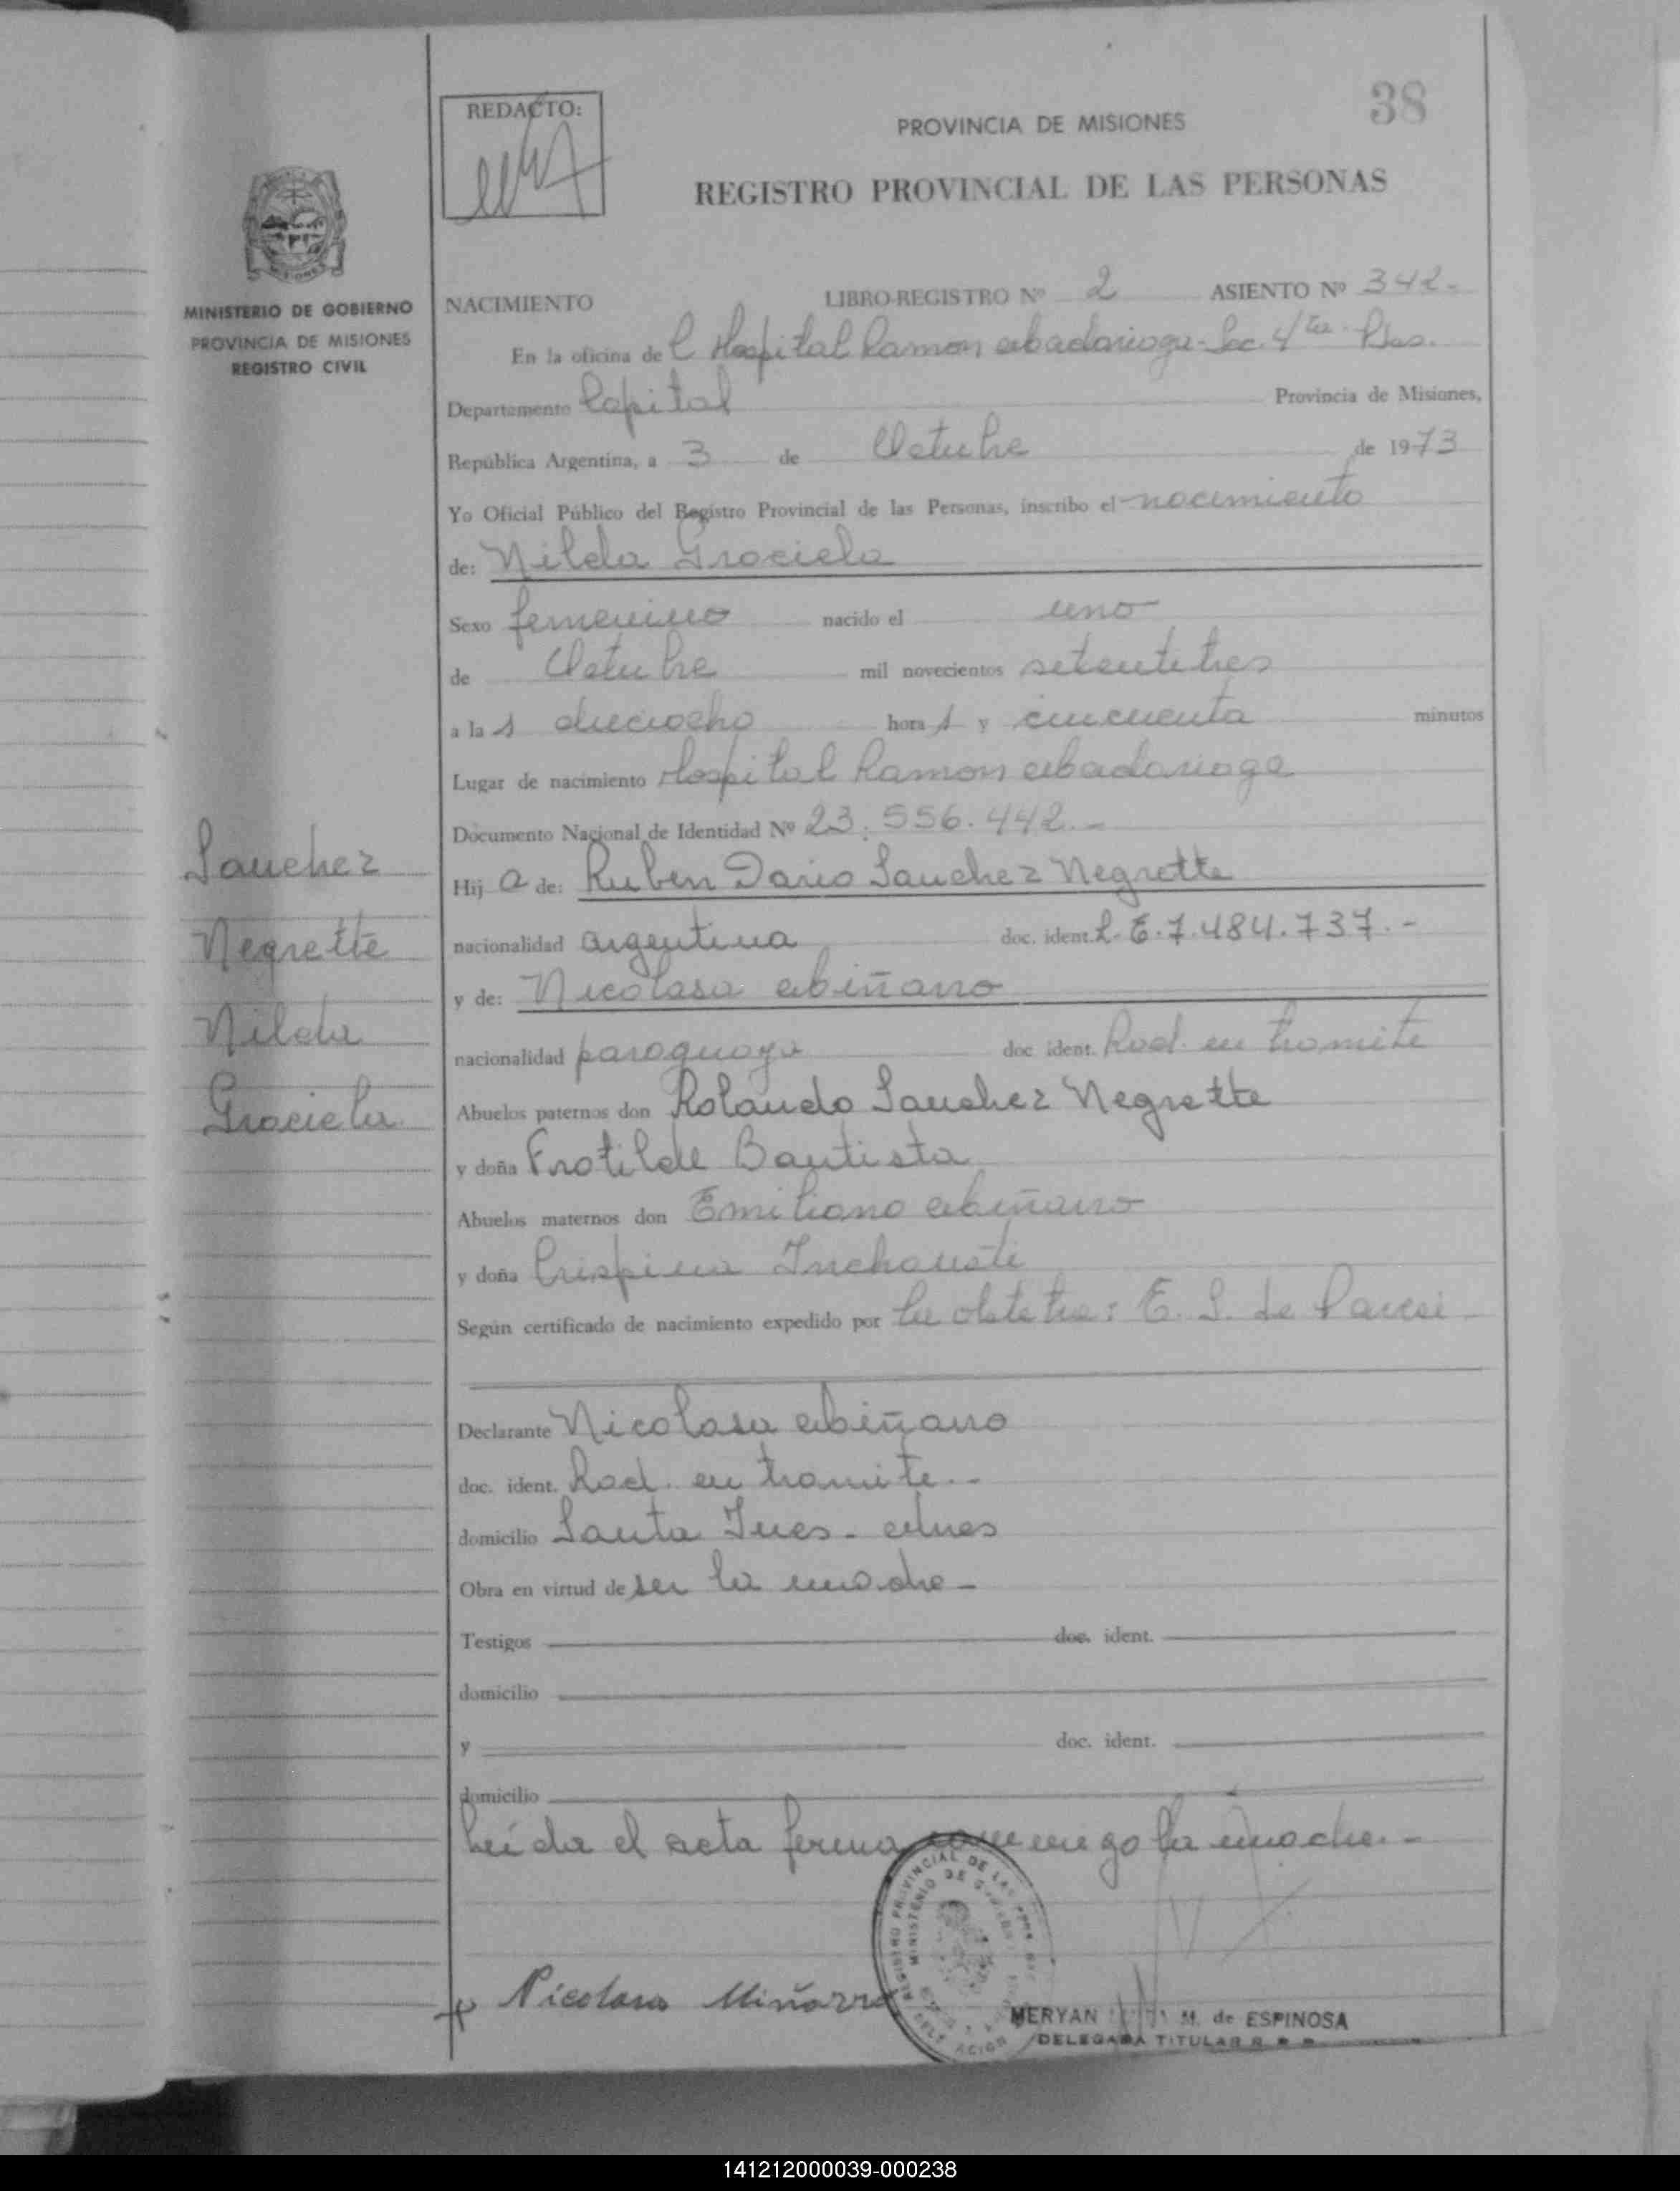 38
REDACTO:
PROVINCIA DE MISIONES
REGISTRO PROVINCIAL DE LAS PERSONAS
MINISTERIO DE GOBIERNO
PROVINCIA DE MISIONES
REGISTRO CIVIL
NACIMIENTO LIBRO-REGISTRO Nº 2 ASIENTO Nº 342.-
En la oficina de l Hospital Ramon Abadariaga - Sec. 4ta. Pdas.
Departamento Capital Provincia de Misiones,
República Argentina, a 3 de Octubre de 1973
Yo Oficial Público del Registro Provincial de las Personas, inscribo el nacimiento
de: Nilda Graciela
Sexo femenino nacido el uno
de Octubre mil novecientos setentitres
a la s dieciocho hora s y cincuenta minutos
Lugar de nacimiento Hospital Ramon Abadariaga
Documento Nacional de Identidad Nº 23.556.442.-
Hij a de: Ruben Dario Sanchez Negrette
nacionalidad argentina doc. ident. L.E. 7.484.737.-
y de: Nicolasa Miñarro
nacionalidad paraguaya doc. ident. Rad. en tramite
Abuelos paternos don Rolando Sanchez Negrette
y doña Frotilde Bautista
Abuelos maternos don Emiliano Miñarro
y doña Crispina Inchausti
Según certificado de nacimiento expedido por la obstetra: E. S. de
Declarante Nicolasa Miñarro
doc. ident. Rad. en tramite.-
domicilio Santa Ines - Mnes
Obra en virtud de ser la madre -
Testigos doc. ident.
domicilio
y doc. ident.
domicilio
Leída el acta firma conmigo la madre.-
Nicolasa Miñarro
MERYAN M. de ESPINOSA
DELEGADA TITULAR R. P. P.
REGISTRO PROVINCIAL DE LAS
MINISTERIO DE
Sanchez
Negrette
Nilda
Graciela
141212000039-000238